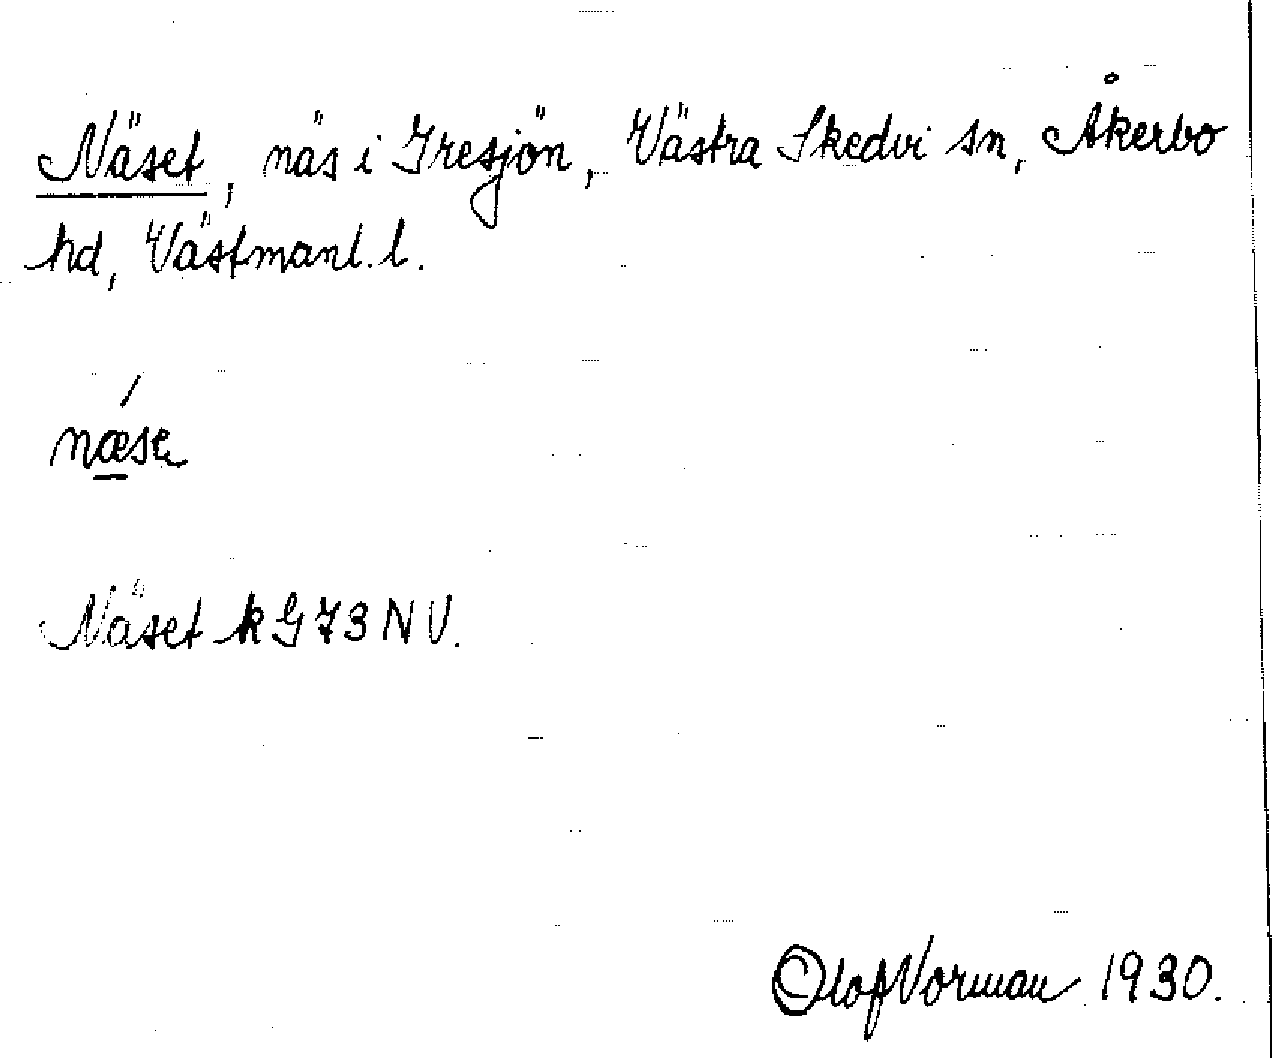 Näset, näs i Iresjön, Västra Skedvi sn, Åkerbo
hd, Västmanl. l.
nǽ̲se
Näset kG73NV.
Olof Vorman 1930.